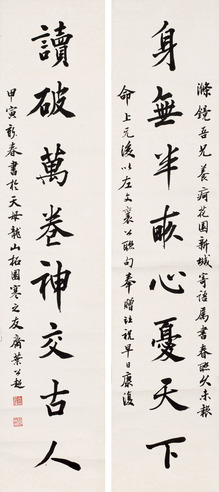 身無半畝心憂天下
滌鏡吾兄養疴花園新城寄語屬書春聯久未報
命上元後以左文襄公聯句奉贈並祝早日康復
讀破萬卷神交古人
甲寅新春書於天母龍山柘園寒之友齋葉公超